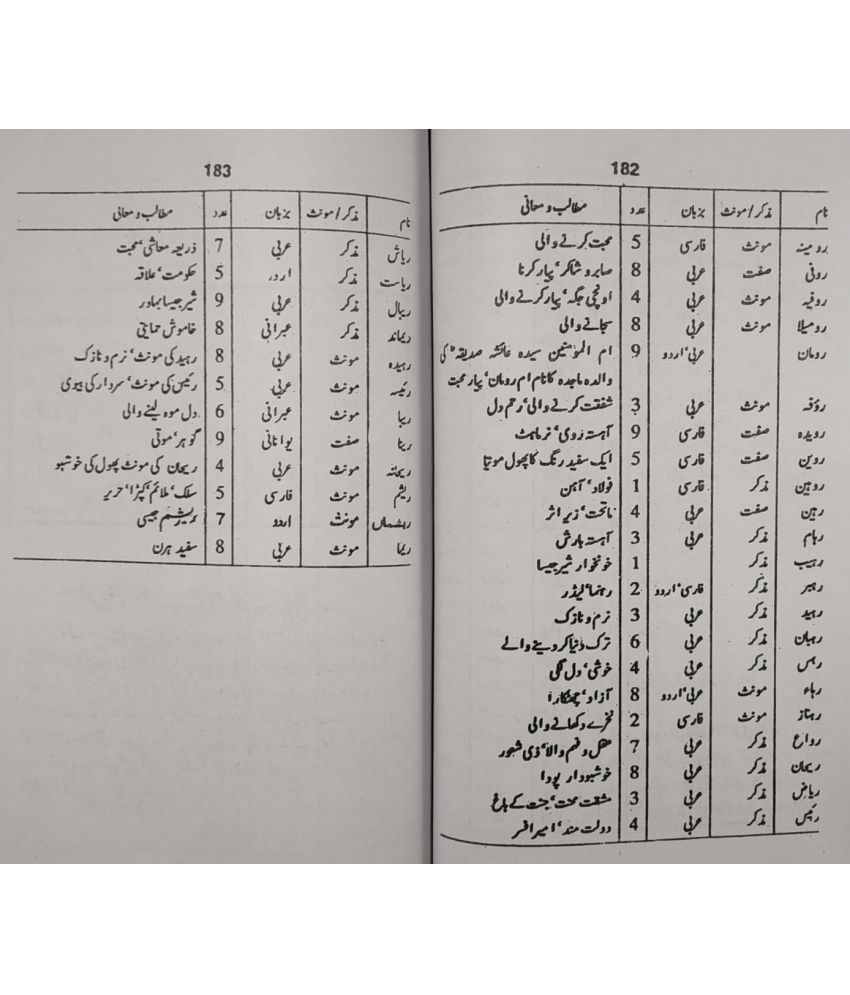 182
نام مذکر/مونث بزبان عدد مطالب و معانی
رومینہ مونث فارسی 5 محبت کرنے والی
روفی صفت عربی 8 صابر و شاکر، پیار کرنا
روفیہ مونث عربی 4 اونچی جگہ، پیار کرنے والی
رومیلا مونث عربی 8 سجانے والی
رومان عربی، اردو 9 ام المؤمنین سیدہ عائشہ صدیقہؓ کی
والدہ ماجدہ کا نام ام رومان، پیار محبت
رؤفہ مونث عربی 3 شفقت کرنے والی، رحم دل
رویدہ صفت فارسی 9 آہستہ روی، نرماہٹ
روین صفت فارسی 5 ایک سفید رنگ کا پھول موتیا
روہین مذکر فارسی 1 فولاد، آہن
رہین صفت عربی 4 ماتحت، زیر اثر
رہام مذکر عربی 3 آہستہ بارش
رہیب مذکر 1 خونخوار شیر جیسا
رہبر مذکر فارسی، اردو 2 رہنما، لیڈر
رہید مذکر عربی 3 نرم و نازک
رہبان مذکر عربی 6 ترک دنیا کر دینے والے
رہس مذکر عربی 4 خوشی، دل لگی
رہاء مونث عربی، اردو 8 آزاد، چھٹکارا
رہناز مونث فارسی 2 نخرے دکھانے والی
رواع مذکر عربی 7 عقل و فہم والا، ذی شعور
ریحان مذکر عربی 8 خوشبودار پودا
ریاض مذکر عربی 3 مشقت محنت، جنت کے باغ
رئیس مذکر عربی 4 دولت مند، امیر افسر
183
نام مذکر/مونث بزبان عدد مطالب و معانی
ریاش مذکر عربی 7 ذریعہ معاشی، محبت
ریاست مذکر اردو 5 حکومت، علاقہ
ریبال مذکر عربی 9 شیر جیسا بہادر
ریماند مذکر عبرانی 8 خاموش حمایتی
رہیدہ مونث عربی 8 رہید کی مونث، نرم و نازک
رئیسہ مونث عربی 5 رئیس کی مونث، سردار کی بیوی
ریبا مونث عبرانی 6 دل موہ لینے والی
ریتا صفت یونانی 9 گوہر، موتی
ریحانہ مونث عربی 4 ریحان کی مونث پھول کی خوشبو
ریشم مونث فارسی 5 سلک، ملائم، کپڑا، حریر
ریشماں مونث اردو 7 ریشم جیسی
ریما مونث عربی 8 سفید ہرن